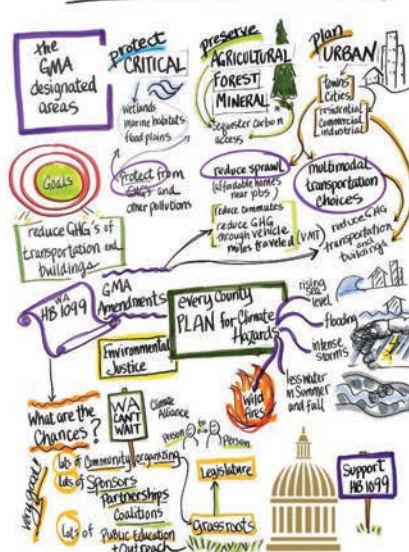 the
GMA
designated
areas
protect
CRITICAL
wetlands
marine habitats
flood plains
Protect from
GHG's and
other pollutions
preserve
AGRICULTURAL
FOREST
MINERAL
sequester carbon
access
plan
URBAN
towns
cities
residential
commercial
industrial
Goals
reduce GHG's of
transportation and
buildings
reduce sprawl
(affordable homes
near jobs)
reduce commutes
reduce GHG
through vehicle
miles traveled (VMT)
multimodal
transportation
choices
reduce GHG
transportation
and
buildings
WA
HB 1099
GMA
Amendments
Environmental
Justice
every County
PLAN for Climate
Hazards
rising
sea
level
flooding
intense
storms
less water
in Summer
and fall
Wild
Fires
What are the
Chances?
very good!
WA
CAN'T
WAIT
Climate
Alliance
Person
to
Person
lots of Community organizing
lots of Sponsors
Partnerships
Coalitions
lots of Public Education
+ Outreach
Legislature
Grassroots
Support
HB 1099